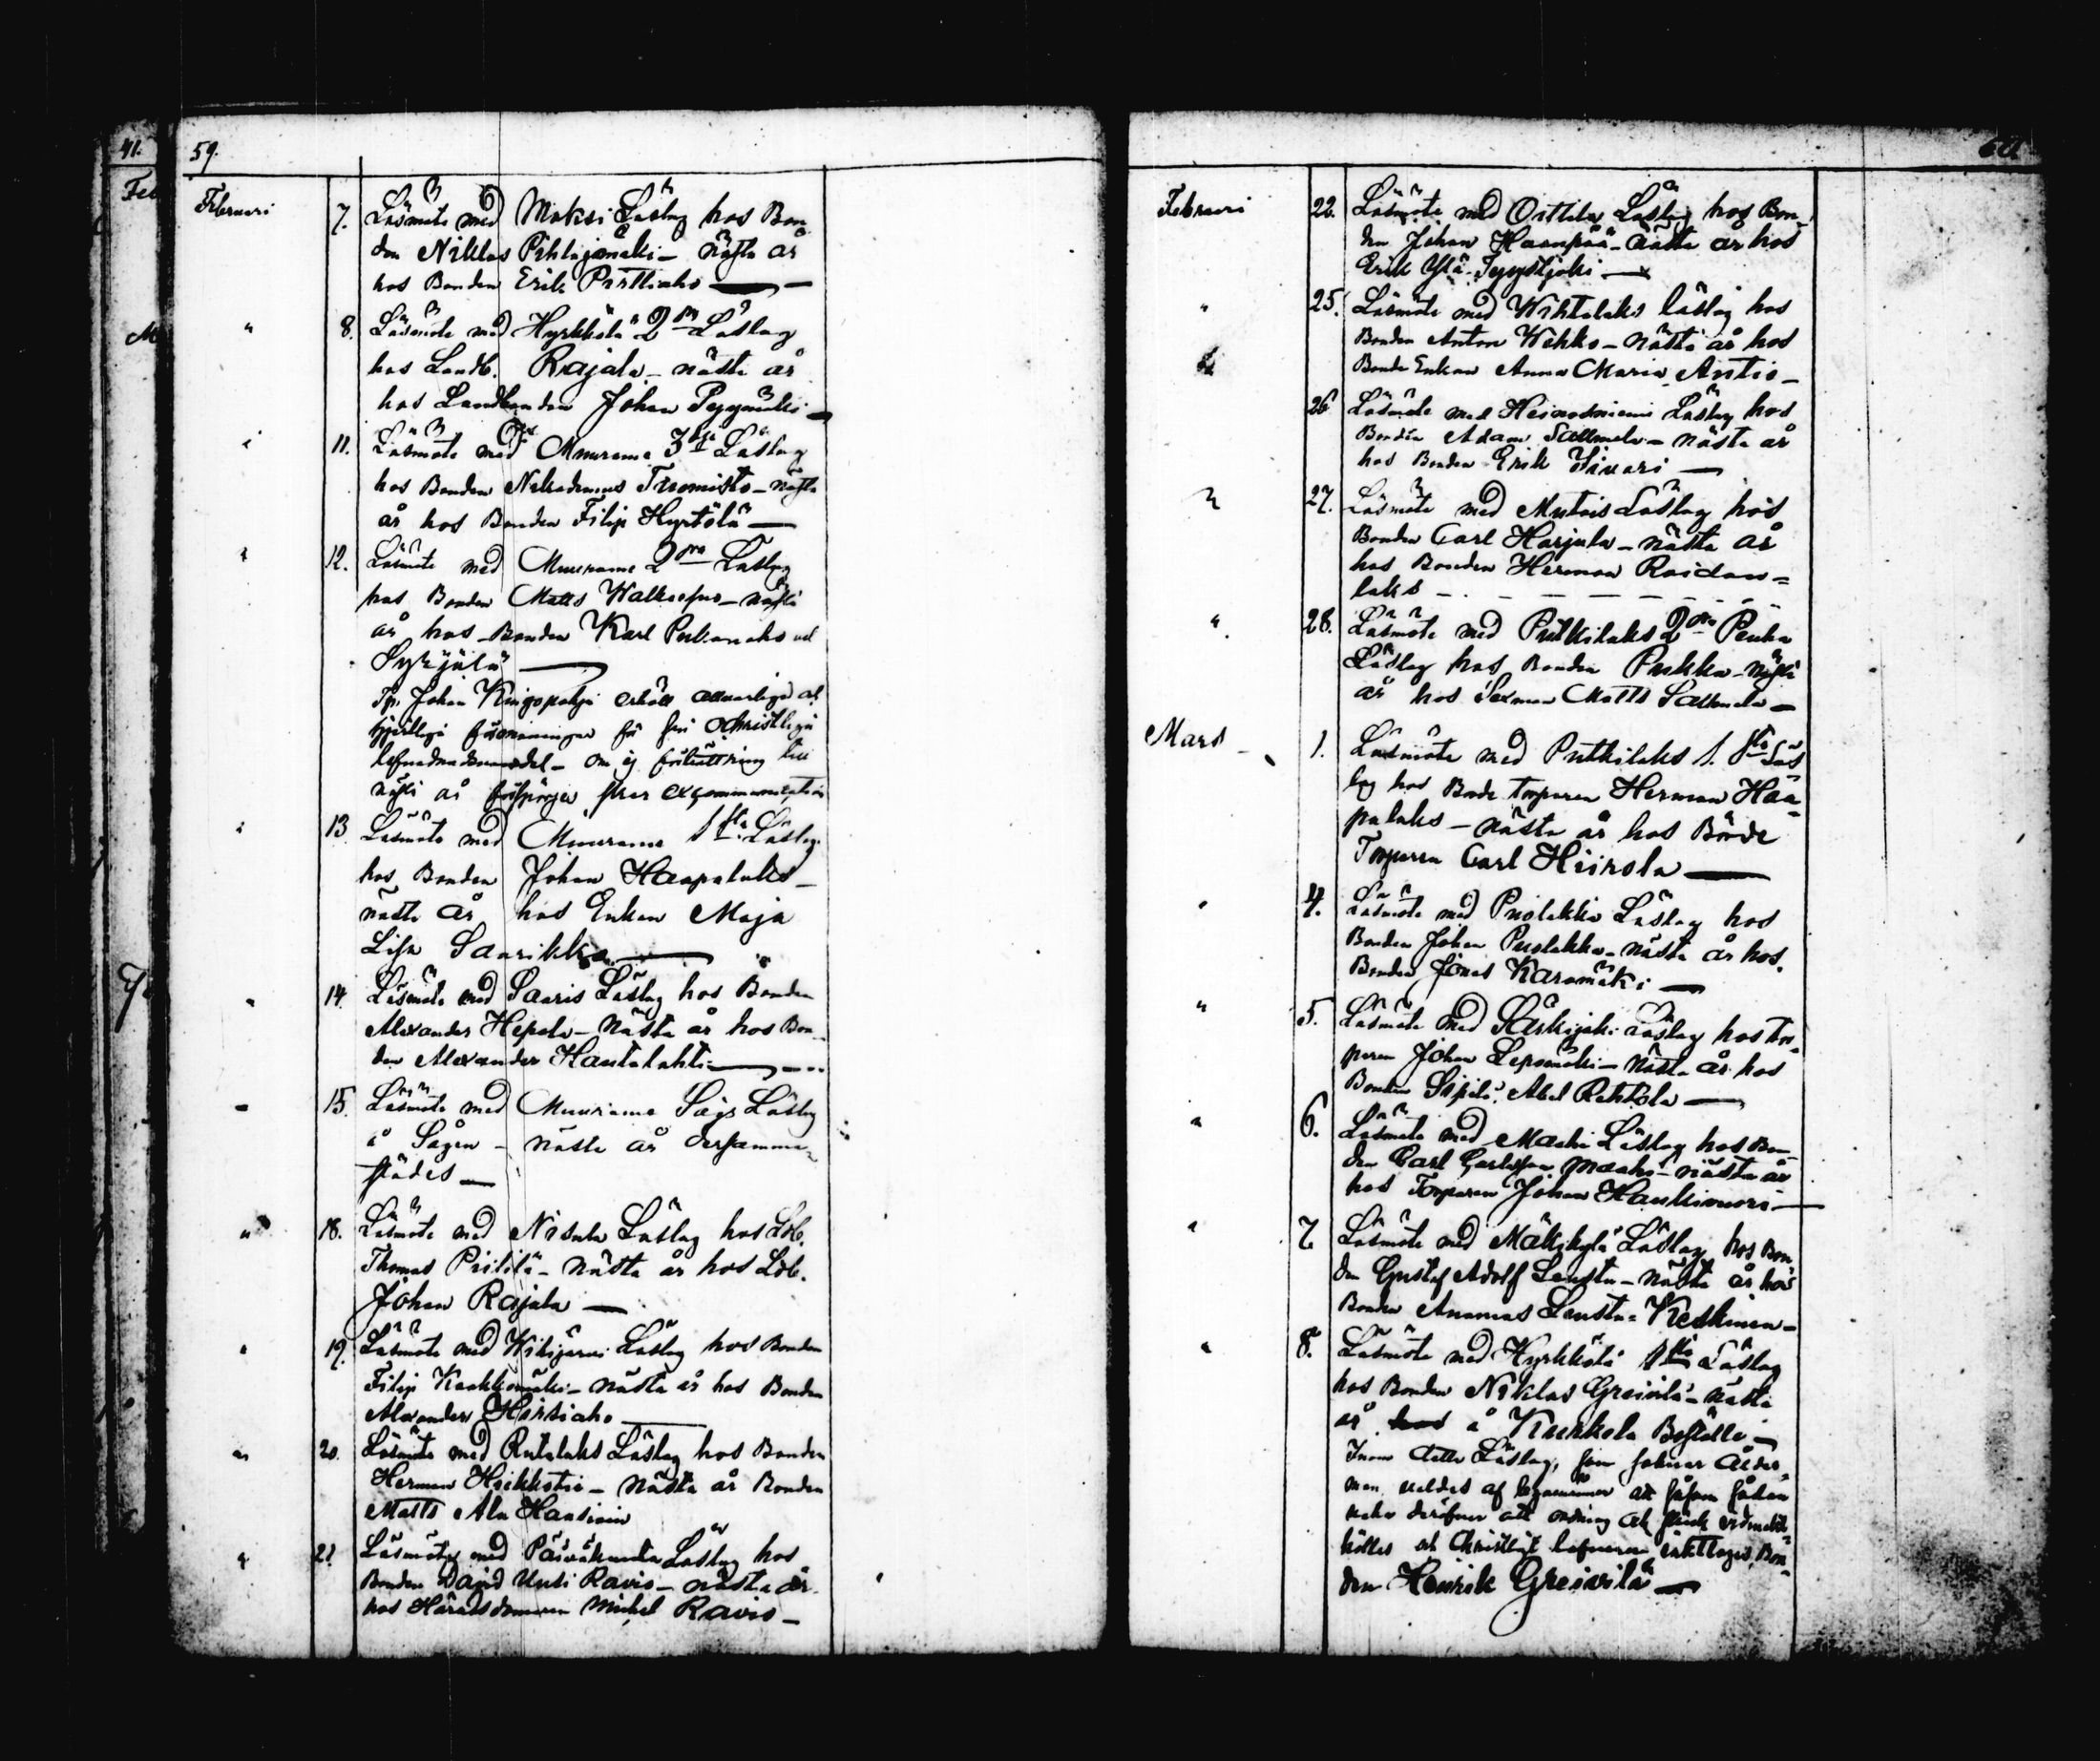 41.
Feb
M
59.
Februari 7. Läsmöte med Moksi Läslag hos Bon-
den Niklas Pihlajamäki – nästa år
hos Bonden Erik Pirttiaho —
" 8. Läsmöte med Hyrkkölä 2dra Läslag
hos Landb. Rajala – nästa år
hos Landbonden Johan Pyymäki –
" 11. Läsmöte med Muurame 3dje Läslag
hos Bonden Nikodemus Tuomisto – nästa
år hos Bonden Filip Hyrtölä —
" 12. Läsmöte med Muurame 2dra Läslag
hos Bonden Matts – nästa
år hos Bonden Karl
Syrjälä —
Tp. Johan erhöll allvarliga och
hjertliga förmaningar för sin ochristliga
lefnadsvandel – om ej förbättring till
nästa år förspörjes sker excommunication
" 13. Läsmöte med Muurame 1sta Läslag
hos Bonden Johan Haapalaks –
nästa år hos Enkan Maja
Lisa Saarikka —
" 14. Läsmöte med Saaris Läslag hos Bonden
Alexander Hepola – nästa år hos Bon-
den Alexander Hautalahti —
" 15. Läsmöte med Muurame Sågs Läslag
å Sågen – nästa år dersamma-
städes —
" 18. Läsmöte med Nisula Läslag hos Ldb.
Thomas Priililä – nästa år hos Ldb.
Johan Rajala —
" 19. Läsmöte med Wihijärvi Läslag hos Bonden
Filip Kaakkomäki – nästa år hos Bonden
Alexander Hirsiaho —
" 20. Läsmöte med Rutalaks Läslag hos Bonden
Herman – nästa år Bonden
Matts Ala
" 21. Läsmöte med Päiväkunta Läslag hos
Bonden David Uusi Ravio – nästa år
hos Häradsdomaren Michel Ravio –
60
Februari 22. Läsmöte med Oittila Läslag hos Bon-
den Johan Haanpää – nästa år hos
Erik Ylä-Tyystjoki —
" 25. Läsmöte med Wihtalaks läslag hos
Bonden Anton Wehko – nästa år hos
Bonde Enkan Anna Maria Antio –
26 Läsmöte med Heinosniemi Läslag hos
Bonden Adam Salmela – nästa år
hos Bonden Erik Sivari —
" 27. Läsmöte med Mutais Läslag hos
Bonden Carl Harjula – nästa år
hos Bonden Herman Raidan=
laks – – – – – –
" 28. Läsmöte med Putkilaks 2dra
Läslag hos Bonden Pukka – nästa
år hos Sexman Matts Salmela –
Mars – 1. Läsmöte med Putkilaks 1.sta Läs
lag hos Bonde torparen Herman Haa-
palaks – nästa år hos Bonde
Torparen Carl Hiirola —
" 4. Läsmöte med Puolakka Läslag hos
Bonden Johan Puolakka – nästa år hos
Bonden Jonas Karamäki —
" 5. Läsmöte med Särkijoki Läslag hos tor-
paren Johan Lepomäki – nästa år hos
Bonden Sipilä Abel Rekola —
" 6. Läsmöte med Maahi Läslag hos Bon-
den Carl Carlsson Maahi – nästa år
hos Torparen Johan Haukivuori —
" 7. Läsmöte med Mäkikylä Läslag hos Bon-
den Gustaf Adolf Leusta – nästa år hos
Bonden Ananias Leusta-Keskinen –
" 8. Läsmöte med Hyrkkölä 1sta Läslag
hos Bonden Niklas Greivilä – nästa
år hos å Kurkola Boställe –
Inom detta Läslag, som saknar Ålder-
man valdes af att såsom sådan
vaka deröfver att ordning och skick
hålles och Christligt lefverne iakttages, Bon-
den Henrik Greivilä —